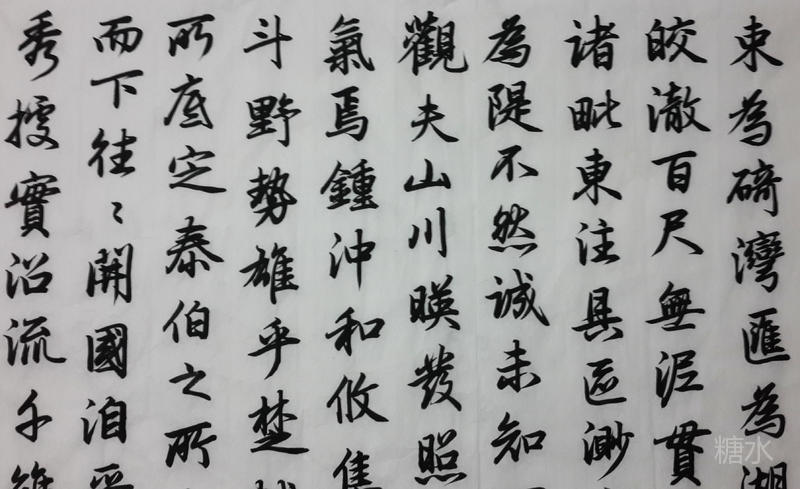 東為碕灣匯為湖
皎澈百尺無泥貫
諸毗東注具區渺
為隄不然誠未知
觀夫山川映發照
氣焉鍾沖和攸集
斗野勢雄乎楚越
所底定泰伯之所
而下往〻開國洎平
秀摭實沿流千雉
糖水